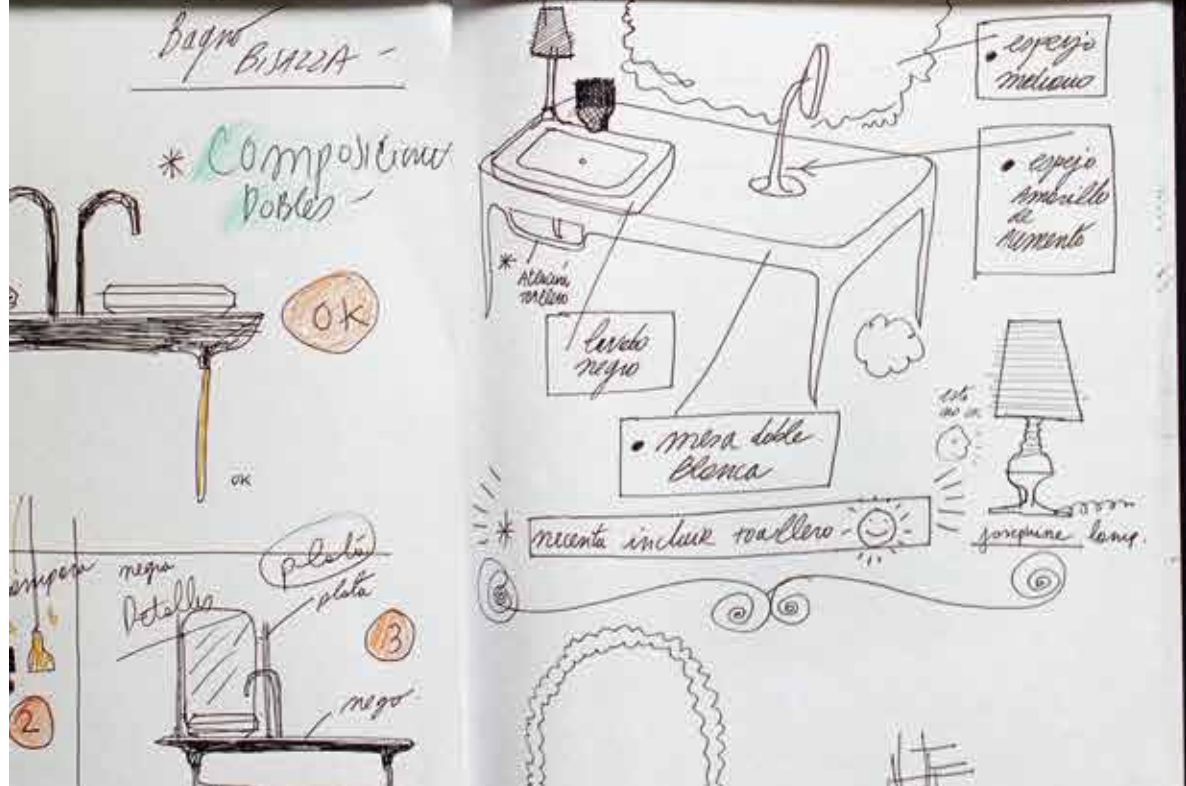 Bagno
BISAZZA -
* Composicion
Dobles -
OK
OK
negra
Detalles
plata
plata
3
2
negro.
• espejo
mediano
• espejo
Amarillo
de
Aumento
*
toallero
lavabo
negro
• mesa doble
Blanca
* necesita incluir toallero -
josephine lamp.